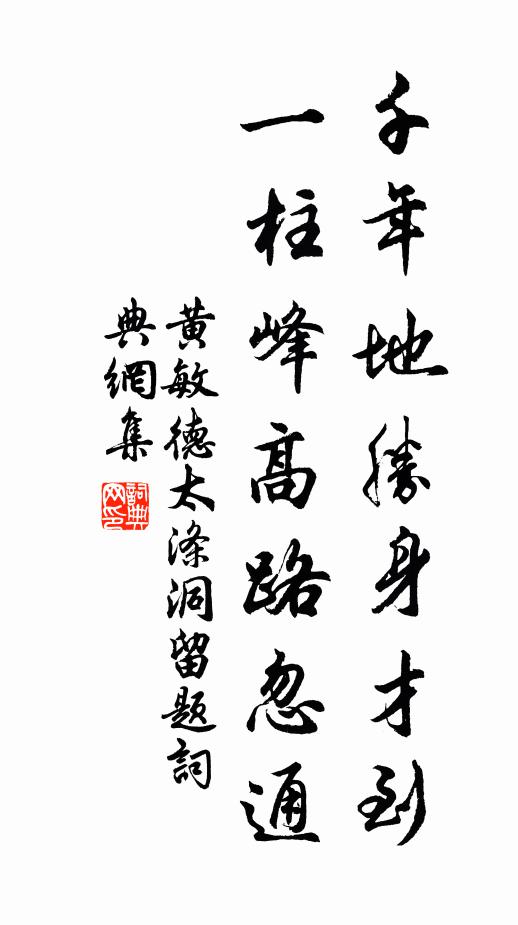 千年地勝身才到
一柱峰高路忽通
黃敏德太滌洞留題詞
典網集
詞典网印